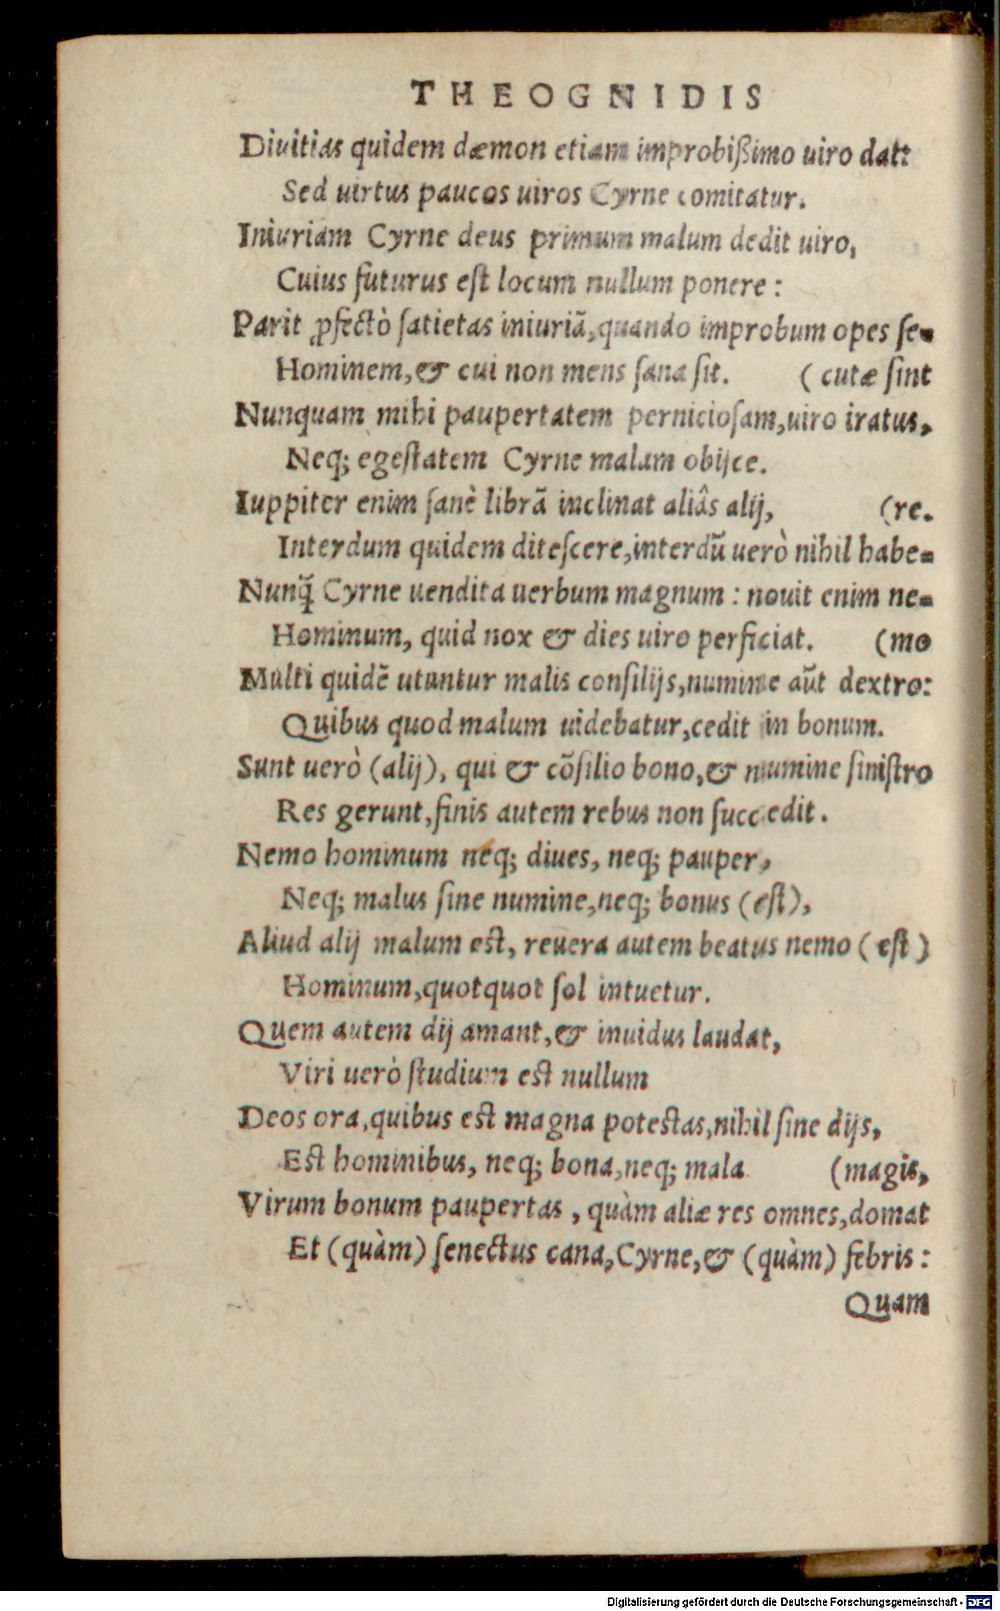 THEOGNIDIS
Diuitias quidem dæmon etiam improbißimo uiro dat:
Sed uirtus paucos uiros Cyrne comitatur.
Iniuriam Cyrne deus primum malum dedit uiro,
Cuius futurus eſt locum nullum ponere :
Parit ꝓfectò ſatietas iniuriã,quando improbum opes ſe-
Hominem,& cui non mens ſana ſit. (cutæ ſint
Nunquam mihi paupertatem pernicioſam,uiro iratus,
Neq; egeſtatem Cyrne malam obijce.
Iuppiter enim ſanè librã inclinat aliâs alij, (re.
Interdum quidem diteſcere,interdũ uerò nihil habe-
Nunq̃ Cyrne uendita uerbum magnum : nouit enim ne-
Hominum, quid nox & dies uiro perficiat. (mo
Multi quidẽ utuntur malis conſilijs,numine aũt dextro:
Quibus quod malum uidebatur,cedit in bonum.
Sunt uerò (alij), qui & cõſilio bono,& numine ſiniſtro
Res gerunt,finis autem rebus non ſuccedit.
Nemo hominum neq; diues, neq; pauper,
Neq; malus ſine numine,neq; bonus (eſt),
Aliud alij malum eſt, reuera autem beatus nemo (eſt)
Hominum,quotquot ſol intuetur.
Quem autem dij amant,& inuidus laudat,
Viri uerò ſtudium eſt nullum
Deos ora,quibus eſt magna poteſtas,nihil ſine dijs,
Eſt hominibus, neq; bona,neq; mala (magis,
Virum bonum paupertas, quàm aliæ res omnes,domat
Et (quàm) ſenectus cana,Cyrne,& (quàm) febris :
Quam
Digitalisierung gefördert durch die Deutsche Forschungsgemeinschaft - DFG